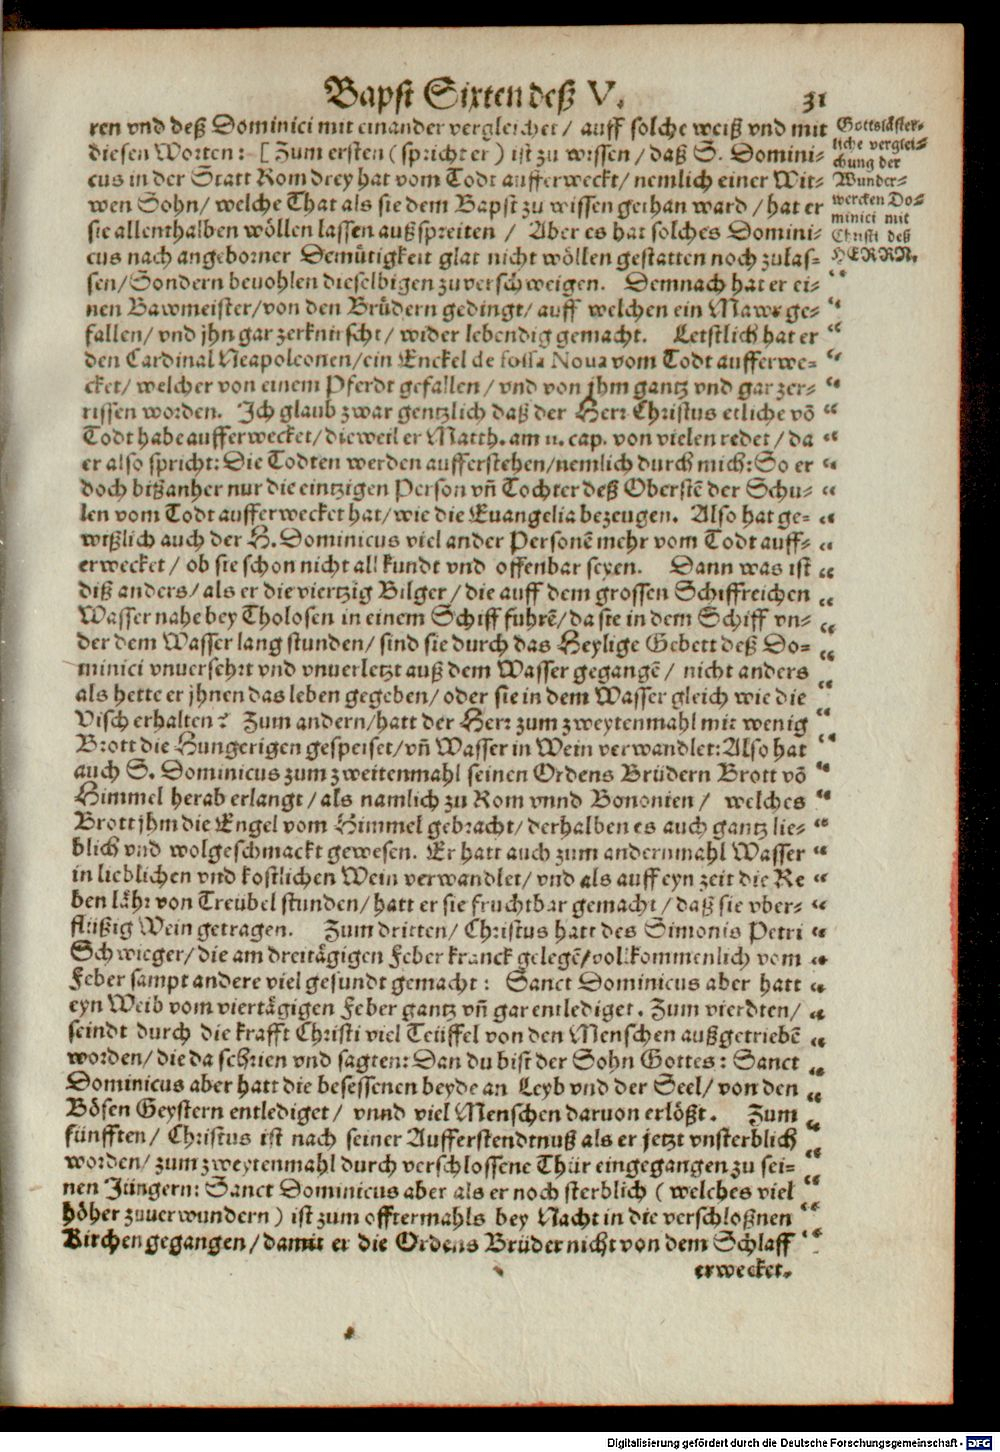 Bapst Sixten deß V. 31
ren vnd deß Dominici mit einander vergleichet / auff solche weiß vnd mit
diesen Worten: [ Zum ersten ( spricht er ) ist zu wissen / daß S. Domini-
cus in der Statt Rom drey hat vom Todt aufferweckt / nemlich einer Wit-
wen Sohn / welche That als sie dem Bapst zu wissen gethan ward / hat er
sie allenthalben wöllen lassen außspreiten / Aber es hat solches Domini-
cus nach angeborner Demütigkeit glat nicht wöllen gestatten noch zulas-
sen / Sondern beuohlen dieselbigen zuverschweigen. Demnach hat er ei-
nen Bawmeister / von den Brüdern gedingt / auff welchen ein Mawr ge-
fallen / vnd jhn gar zerknirscht / wider lebendig gemacht. Letstlich hat er
den Cardinal Neapoleonen / ein Enckel de fossa Noua vom Todt aufferwe-
cket / welcher von einem Pferdt gefallen / vnd von jhm gantz vnd gar zer-
rissen worden. Ich glaub zwar gentzlich daß der Herr Christus etliche võ
Todt habe aufferwecket / dieweil er Matth. am 11. cap. von vielen redet / da
er also spricht: Die Todten werden aufferstehen / nemlich durch mich: So er
doch bißanher nur die eintzigen Person vñ Tochter deß Oberstẽ der Schu-
len vom Todt aufferwecket hat / wie die Euangelia bezeugen. Also hat ge-
wißlich auch der H. Dominicus viel ander Personẽ mehr vom Todt auff-
erwecket / ob sie schon nicht all kundt vnd offenbar seyen. Dann was ist
diß anders / als er die viertzig Bilger / die auff dem grossen Schiffreichen
Wasser nahe bey Tholosen in einem Schiff fuhrẽ / da sie in dem Schiff vn-
der dem Wasser lang stunden / sind sie durch das Heylige Gebett deß Do-
minici vnuersehrt vnd vnuerletzt auß dem Wasser gegangẽ / nicht anders
als hette er jhnen das leben gegeben / oder sie in dem Wasser gleich wie die
Visch erhalten? Zum andern / hatt der Herr zum zweytenmahl mit wenig
Brott die Hungerigen gespeiset / vñ Wasser in Wein verwandlet: Also hat
auch S. Dominicus zum zweitenmahl seinen Ordens Brüdern Brott võ
Himmel herab erlangt / als namlich zu Rom vnnd Bononien / welches
Brott jhm die Engel vom Himmel gebracht / derhalben es auch gantz lie-
blich vnd wolgeschmackt gewesen. Er hatt auch zum andernmahl Wasser
in lieblichen vnd kostlichen Wein verwandlet / vnd als auff eyn zeit die Re
ben lähr von Treübel stunden / hatt er sie fruchtbar gemacht / daß sie vber-
flüßig Wein getragen. Zum dritten / Christus hatt des Simonis Petri
Schwieger / die am dreitägigen Feber kranck gelegẽ / vollkommenlich vom
Feber sampt andere viel gesundt gemacht: Sanct Dominicus aber hatt
eyn Weib vom viertägigen Feber gantz vñ gar entlediget. Zum vierdten /
seindt durch die krafft Christi viel Teüffel von den Menschen außgetriebẽ
worden / die da schrien vnd sagten: Dan du bist der Sohn Gottes: Sanct
Dominicus aber hatt die besessenen beyde an Leyb vnd der Seel / von den
Bösen Geystern entlediget / vnnd viel Menschen daruon erlößt. Zum
fünfften / Christus ist nach seiner Aufferstendtnuß als er jetzt vnsterblich
worden / zum zweytenmahl durch verschlossene Thür eingegangen zu sei-
nen Jüngern: Sanct Dominicus aber als er noch sterblich ( welches viel
höher zuuerwundern ) ist zum offtermahls bey Nacht in die verschloßnen
Kirchen gegangen / damit er die Ordens Brüder nicht von dem Schlaff
erwecket.
Gottsläster-
liche verglei-
chung der
Wunder-
wercken Do-
minici mit
Christi deß
HERRN.
Digitalisierung gefördert durch die Deutsche Forschungsgemeinschaft - DFG